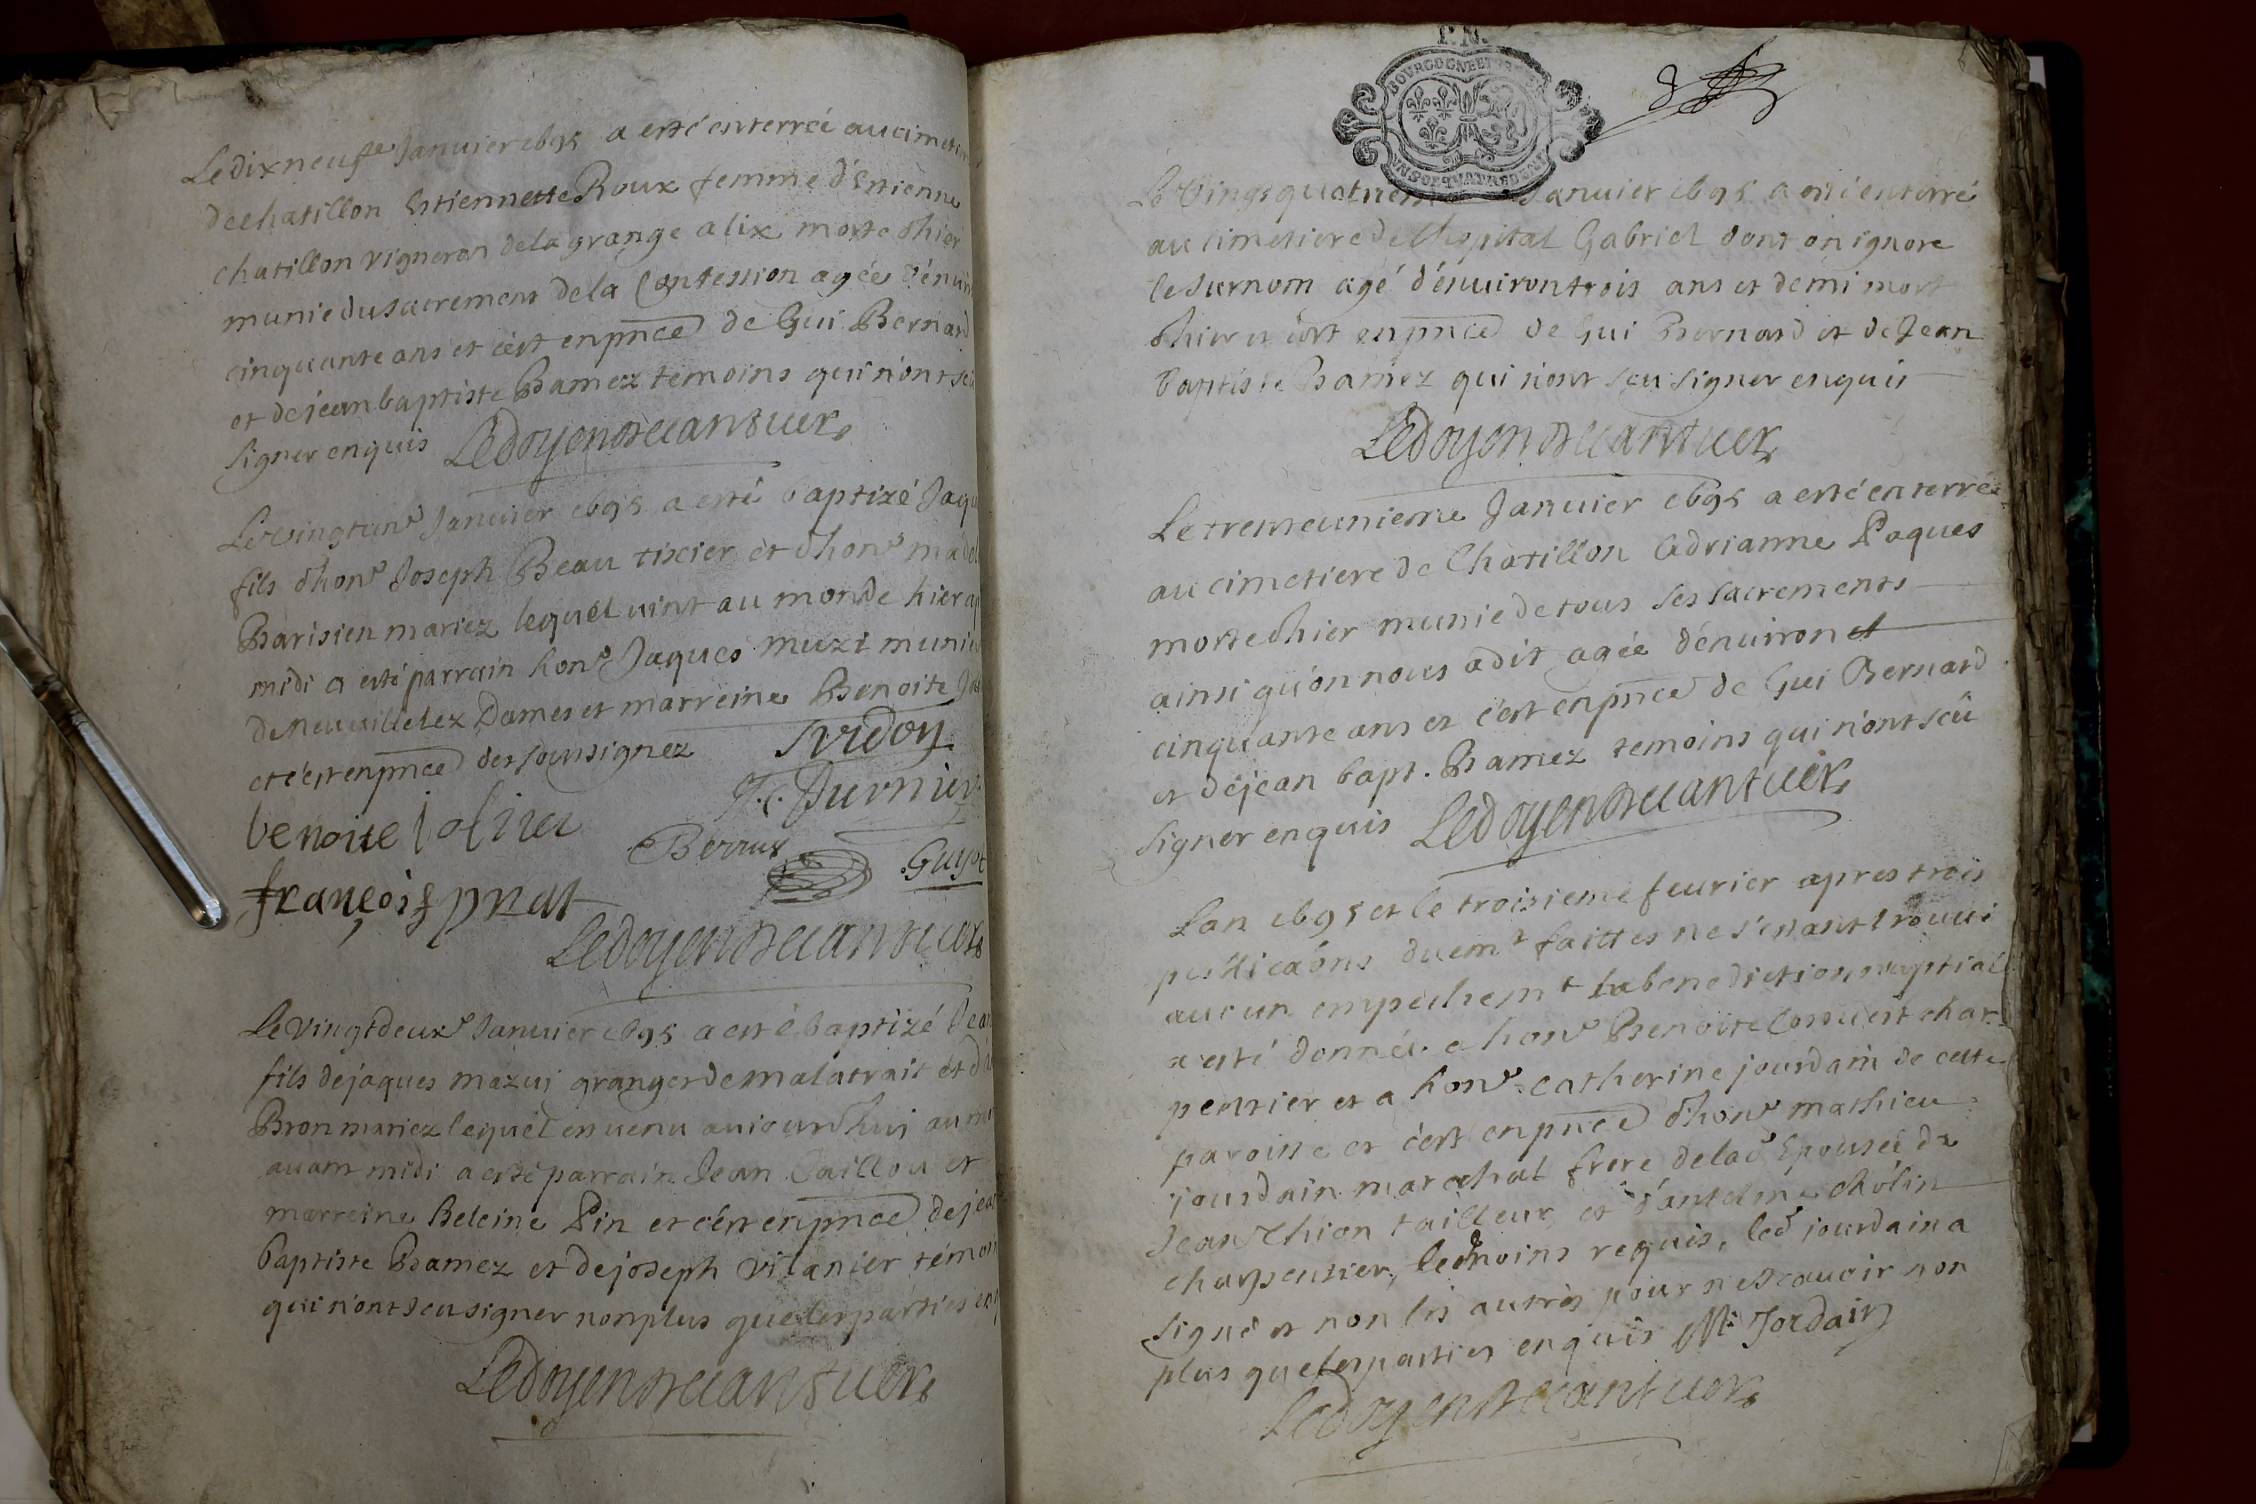 Le dix neufe Janvier 1695 a esté enterrée au cimetie
de chatillon Estiennette Roux femme d'Estienne
chatillon vigneron de la grange alix morte d'hier
munie du sacrement de la Confession agée d'énuir
cinquante ans et c'est en pnce de Gui Bernard
et de jean baptiste Bamez temoins qui n'ont sceu
signer enquis Ledoyen
Le vingtune Janvier 1695 a esté baptizé Jaqu
fils d'hone Joseph Beau tixier et d'hone madel
Barisien mariez lequel vint au monde hier ap
midi a esté parrain hone Jaques muzi munie
de neuuillelez Dames et marreine Benoite
et c'est en pnce des sousignez
F.C. Burnier
benoite
Berrux Guyot
françois prat
Ledoyen
Le vingtdeuxe Janvier 1695 a esté baptizé Jean
fils de jaques mazuj granger de malatrait et
Bron mariez lequel est venu aujourdhuj au mo
avant midi a esté parrain Jean Caillou et
marreine Heleine Pin et c'est en pnce de jean
baptiste Bamez et de joseph vilanier témoin
qui n'ont sceu signer non plus que les parties enq
Ledoyen
BOVRGOGNE ET
Le Vingt quatrieme Janvier 1695 a esté enterré
au cimetiere de l'hopital Gabriel dont on ignore
le surnom agé d'énuiron trois ans et demi mort
d'hier et c'est en pnce de Gui Bernard et de Jean
baptiste Bamez qui n'ont sceu signer enquis
Ledoyen
Le trenteunieme Janvier 1695 a esté enterrée
au cimetiere de Chatillon Adrianne Paques
morte d'hier munie de tous ses sacrements
ainsi qu'on nous a dit agée d'énuiron et
cinquante ans et c'est en pnce de Gui Bernard
et de jean bapt. Bamez temoins qui n'ont sceu
signer enquis Ledoyen
Lan 1695 et le troisieme feurier apres trois
publicaóns duemt faittes ne s'estant trouué
aucun empechemt la benediction nuptiale
a esté donnée a hone Benoite char-
pentier et a hone Catherine jourdain de cette
paroisse et c'est en pnce d'hone mathieu
jourdain marechal frere de lad Epousée de
Jean Thion tailleur et d'antelme chólin
charpentier, temoins requis, led jourdain a
signé et non les autres pour ne scauoir non
plus que les parties enquis M. Jordain
Ledoyen